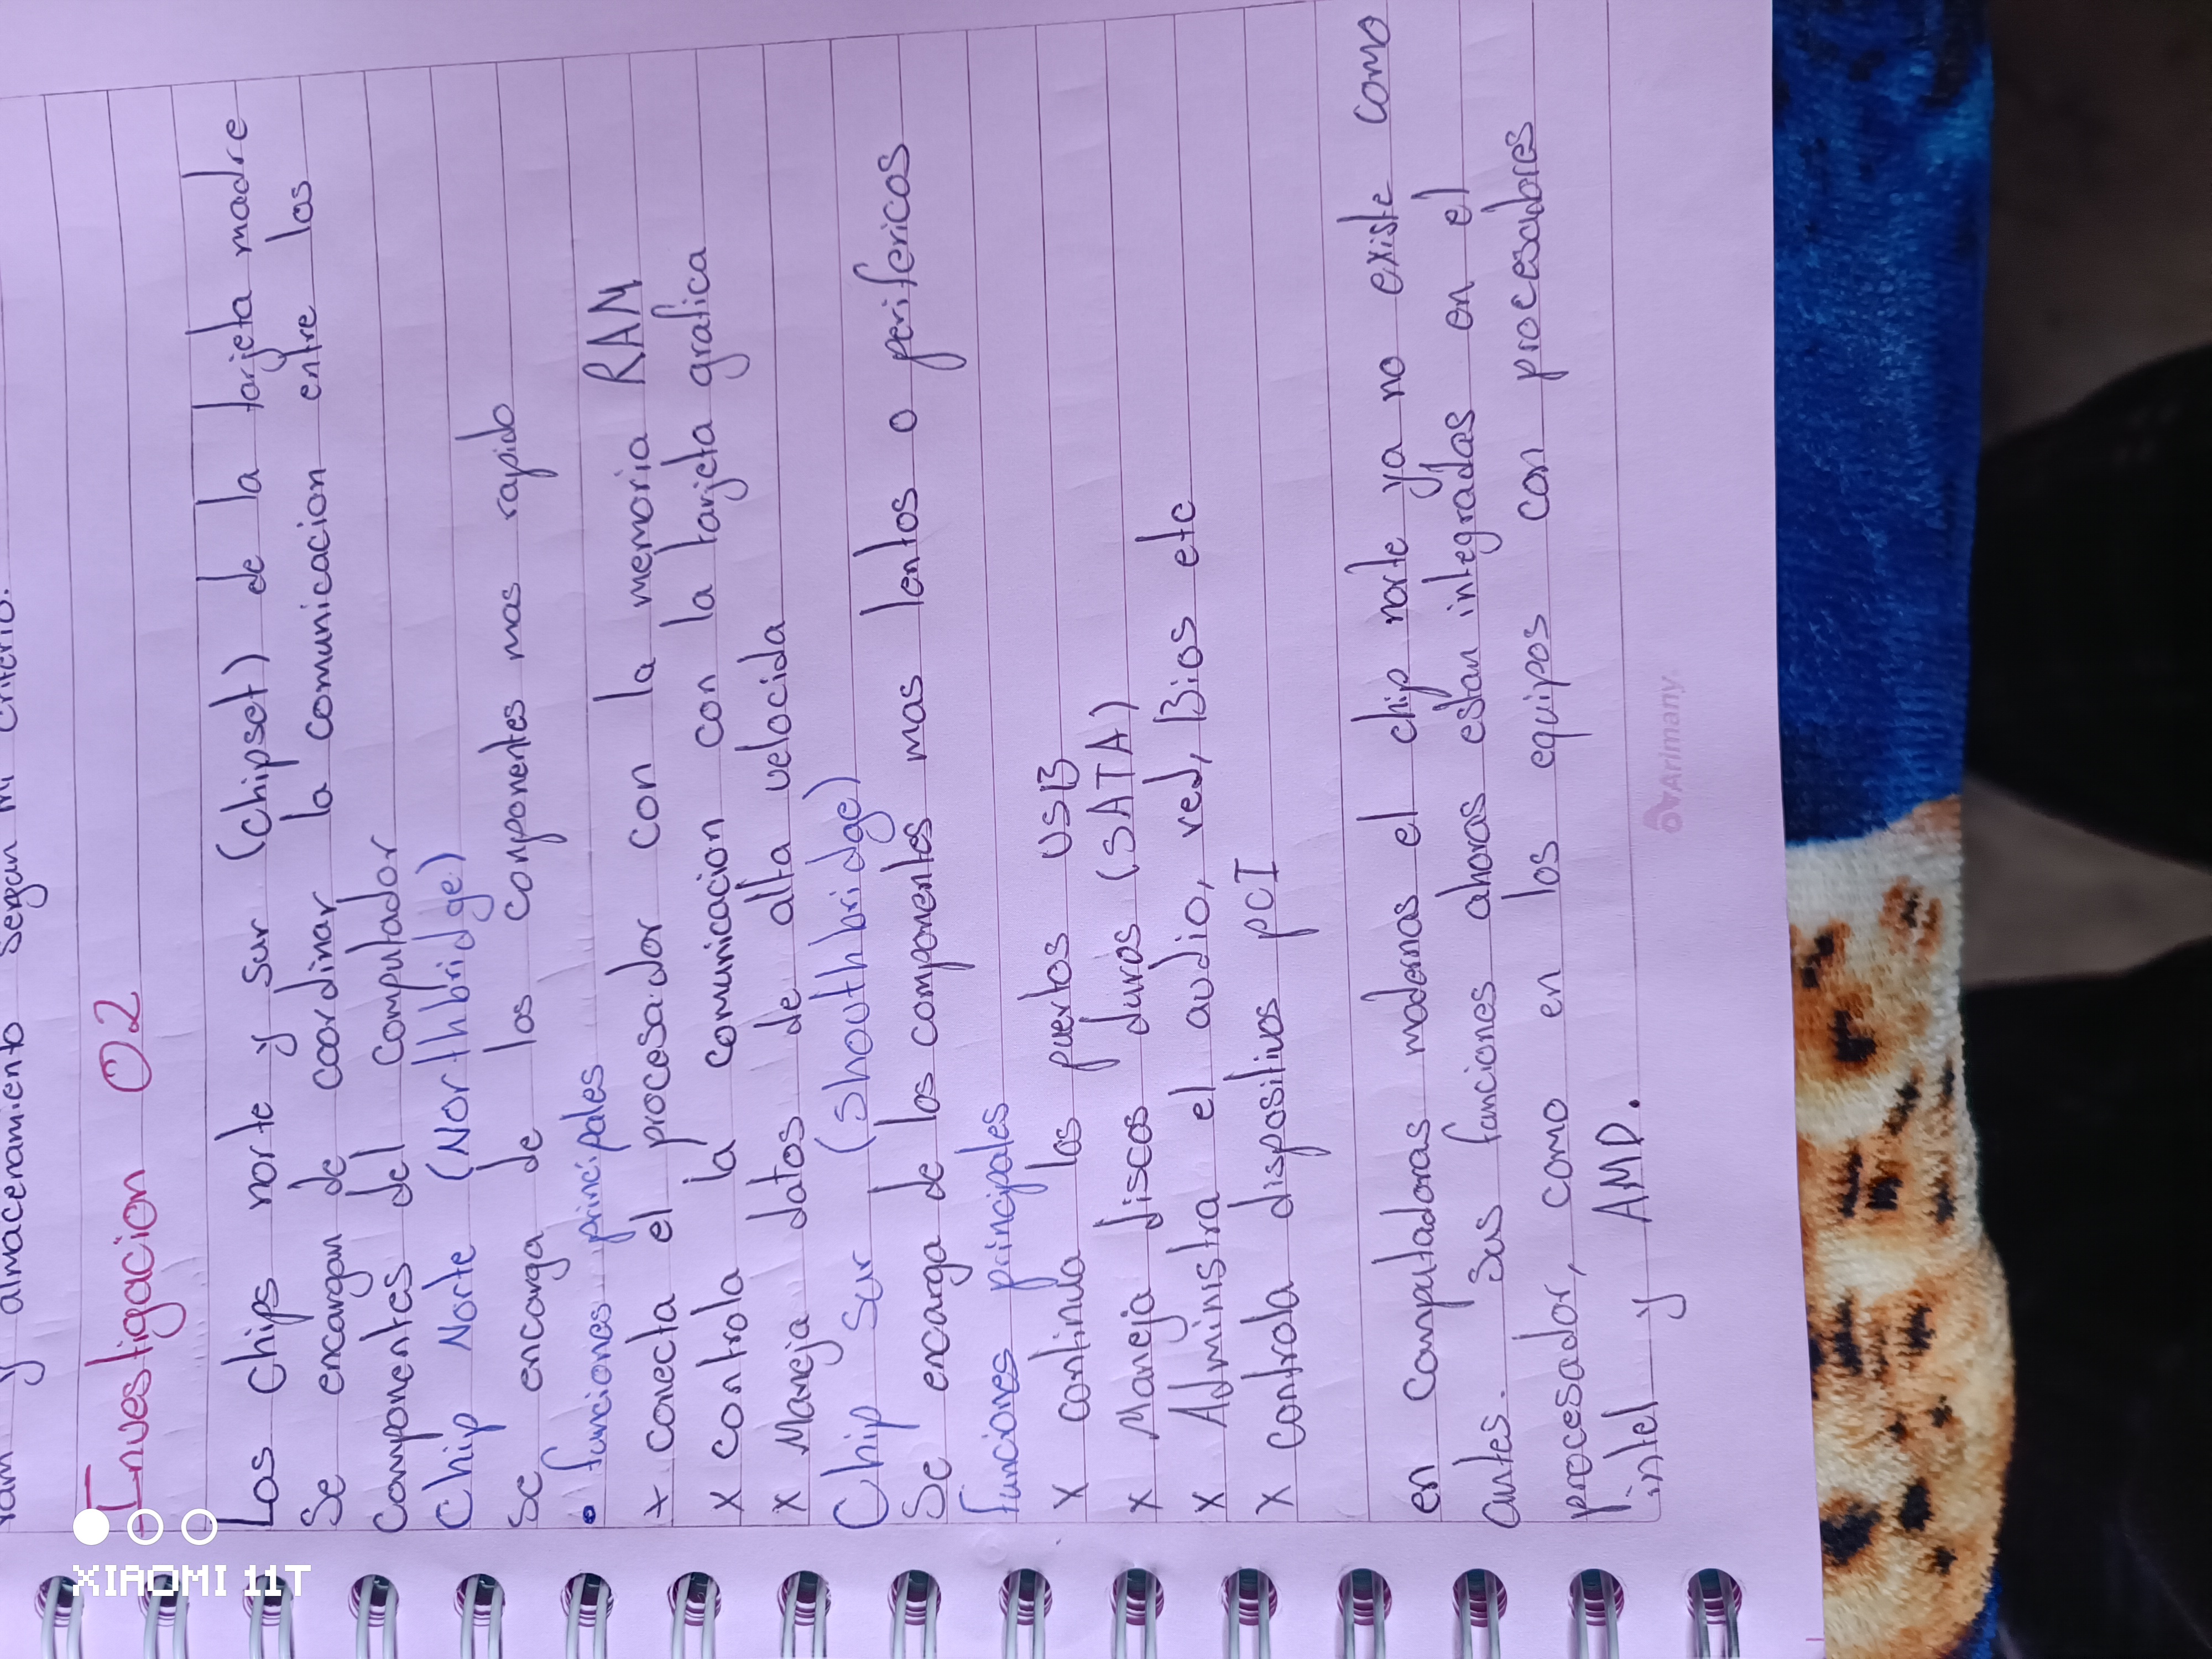 ram y almaceramiento segun mi criterio.
Investigacion 02
Los chips norte y sur (chipset) de la tarjeta madre
Se encargan de coordinar la comunicacion entre los
Componentes del computador
Chip Norte (Northbridge)
Se encarga de los componentes mas rapido
• funciones principales
+ conecta el procesador con la memoria RAM
x controla la comunicacion con la tarjeta grafica
x Maneja datos de alta velocida
Chip Sur (Shouthbridge)
Se encarga de los componentes mas lentos o perifericos
funciones principales
x continua los puertos USB
x Maneja discos duros (SATA)
x Administra el audio, red, Bios etc
x controla dispositivos PCI
en computadoras modernas el chip norte ya no existe como
antes. Sus funciones ahoras estan integradas en el
procesador, como en los equipos con procesadores
intel y AMD.
Arimany.
XIAOMI 11T